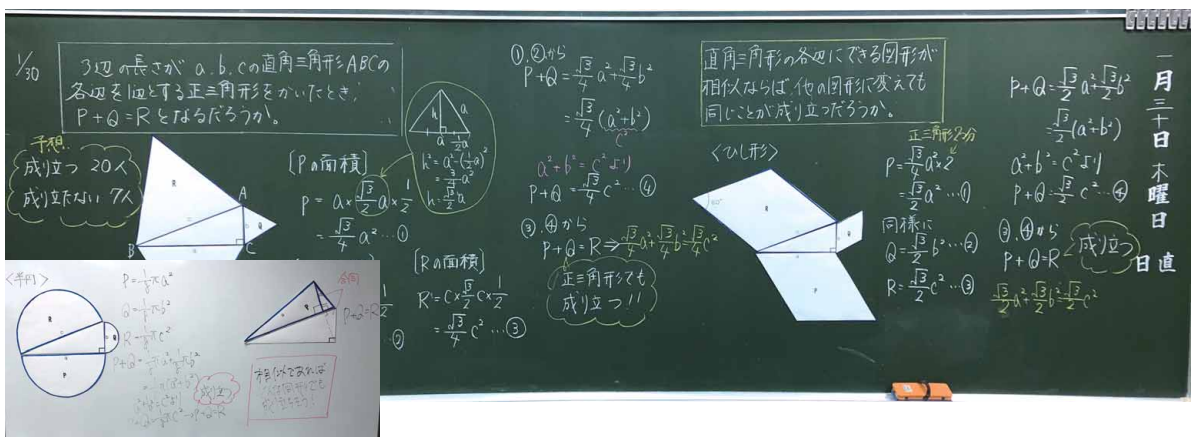 1/30
3辺の長さが a.b.cの直角三角形ABCの
各辺を1辺とする正三角形をかいたとき、
P+Q=Rとなるだろうか。
予想
成り立つ 20人
成り立たない 7人
R
A
Q
B
C
a
a
1/2a
h²=a²-(1/2a)²
=3/4a²
h=√3/2a
[Pの面積]
P=a×√3/2a×1/2
=√3/4a² …①
[Rの面積]
R=c×√3/2c×1/2
=√3/4c² …③
…②
①.②から
P+Q=√3/4a²+√3/4b²
=√3/4(a²+b²)
c²
a²+b²=c²より
P+Q=√3/4c² …④
③.④から
P+Q=R⇒√3/4a²+√3/4b²=√3/4c²
正三角形でも
成り立つ!!
直角三角形の各辺にできる図形が
相似ならば、他の図形に変えても
同じことが成り立つだろうか。
<ひし形>
R
Q
P
正三角形2つ分
P=√3/4a²×2
=√3/2a² …①
同様に
Q=√3/2b² …②
R=√3/2c² …③
P+Q=√3/2a²+√3/2b²
=√3/2(a²+b²)
a²+b²=c²より
P+Q=√3/2c² …④
③.④から
P+Q=R
成り立つ
√3/2a²+√3/2b²=√3/2c²
一月三十日木曜日
日直
<半円>
R
Q
P
P=1/8πa²
Q=1/8πb²
R=1/8πc²
P+Q=1/8πa²+1/8πb²
=1/8π(a²+b²)
成り立つ
P+Q=R
相似であれば